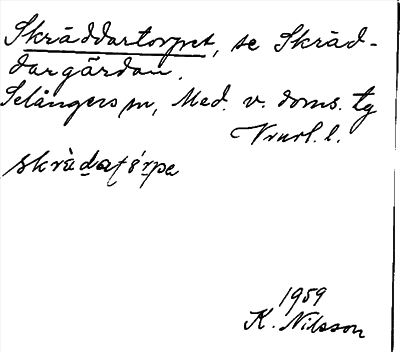 Skräddartorpet, se Skräd-
dargårdan.
Selångers sn, Med. v. doms. tg
l.
skrädatórpe
1959
K. Nilsson